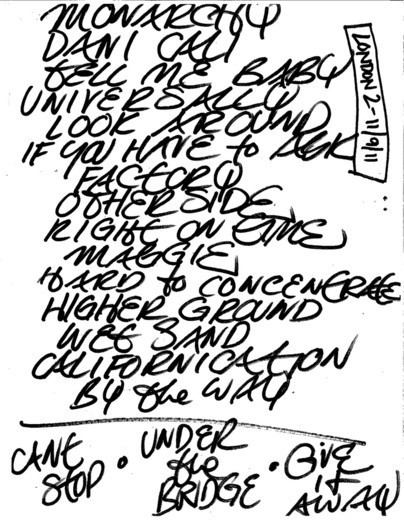 MONARCHY
DANI CALI
TELL ME BABY
UNIVERSALLY
LOOK AROUND
IF YOU HAVE to ASK
FACTORY
OTHERSIDE
RIGHT ON TIME
MAGGIE
HARD to CONCENTRATE
HIGHER GROUND
WET SAND
CALIFORNICATION
BY the WAY
CANT STOP • UNDER the BRIDGE • GIVE IT AWAY
LONDON 2 - 11/9/11